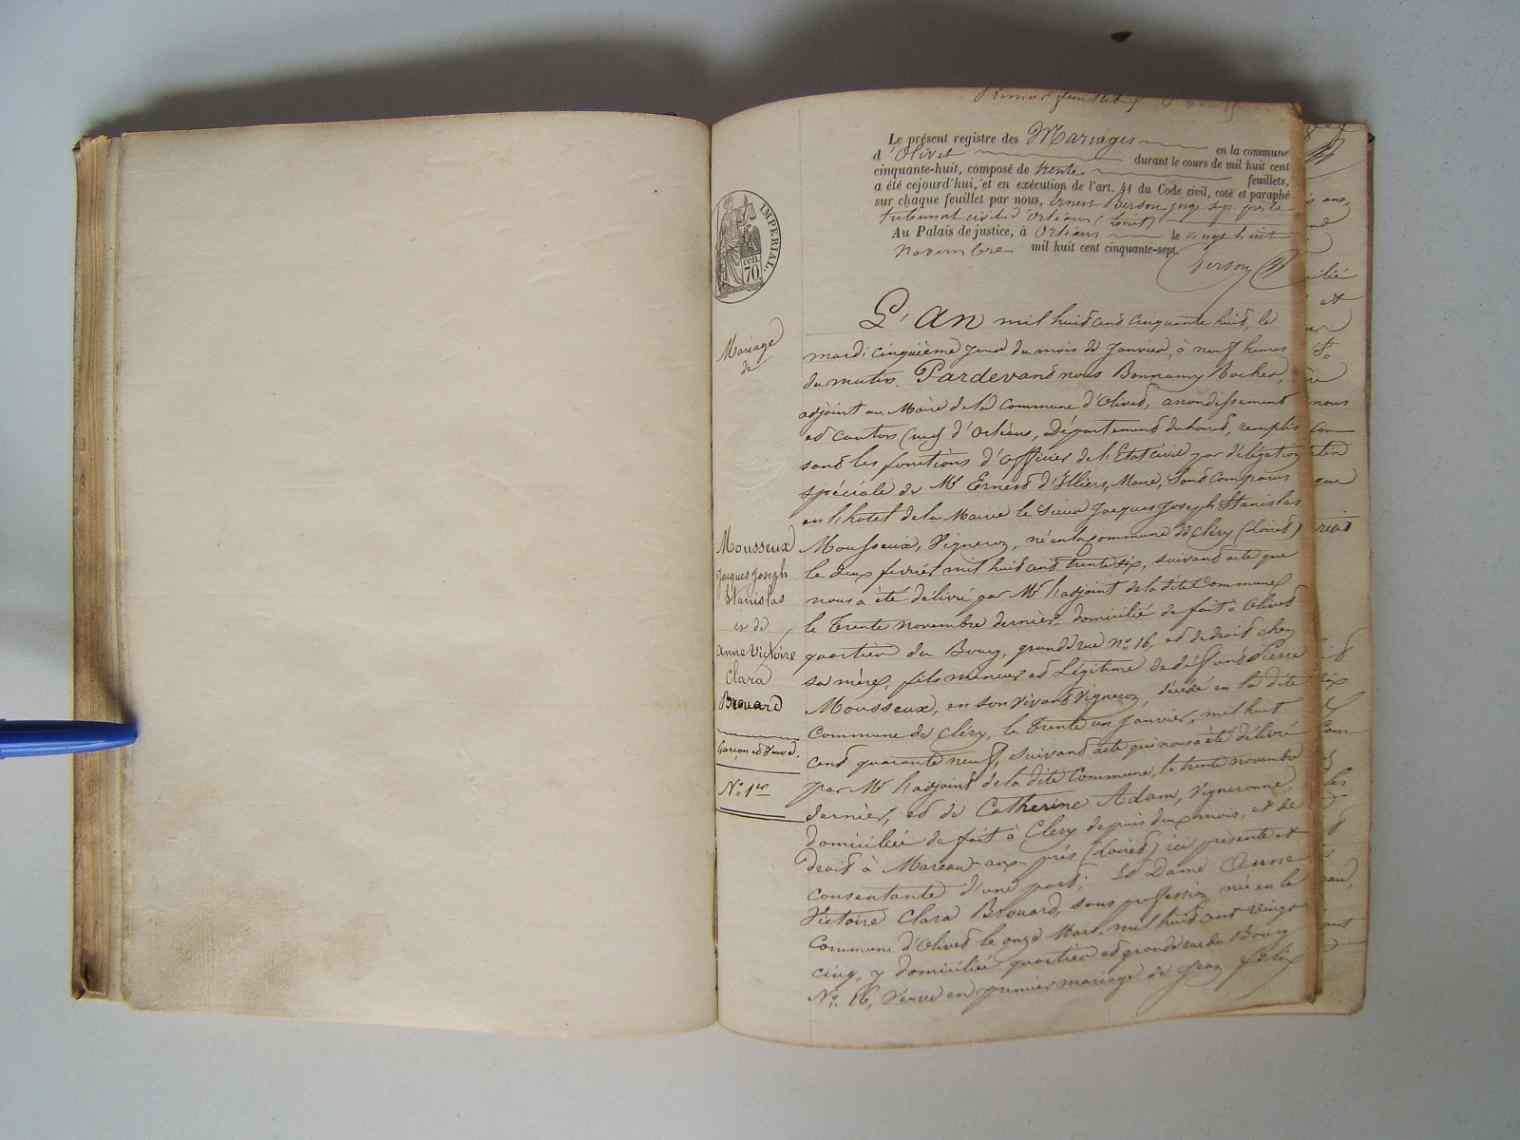 Le présent registre des Mariages en la commune
d'Olivet durant le cours de mil huit cent
cinquante-huit, composé de trente feuillets,
a été cejourd'hui, et en exécution de l'art. 41 du Code civil, coté et paraphé
sur chaque feuillet par nous, Ernest Berson juge sup. par le
tribunal civil d'Orléans (Loiret)
Au Palais de justice, à Orléans le vingt huit
novembre mil huit cent cinquante-sept.
Berson
IMPERIAL.
70
Mariage
de
Mousseux
Jacques Joseph
Stanislas
et de
Anne Victoire
Clara
Brouard
Garçon et Veuve.
No. 1er
L'An mil huit cent cinquante huit, le
mardi cinquième jour du mois de Janvier, à neuf heures
du matin. Pardevant nous Bonnamy Rocher,
adjoint au Maire de la Commune d'Olivet, arrondissement
et canton (sud) d'Orléans, Département du Loiret, remplis
sant les fonctions d'Officier de l'Etat civil par délégation
spéciale de Mr Ernest d'Illiers, Maire, sont comparus
en l'hôtel de la Mairie le Sieur Jacques Joseph Stanislas
Mousseux, Vigneron, né en la commune de Cléry (Loiret)
le deux fevrier mil huit cent trente six, suivant acte que
nous a été délivré par Mr l'adjoint de la dite Commune
le Trente novembre dernier, domicilié de fait à Olivet
quartier du Bourg, grande rue no. 16, et de droit chez
sa mère, fils mineur et Légitime de défunt Pierre
Mousseux, en son vivant Vigneron, décédé en la dite
Commune de Cléry, le Trente un Janvier, mil huit
cent quarante neuf, suivant acte qui nous a été délivré
par Mr l'adjoint de la dite Commune, le trente novembre
dernier, et de Catherine Adam, Vigneronne,
domiciliée de fait à Cléry depuis deux mois, et de
droit à Mareau-aux-prés (Loiret) ici présente et
consentante d'une part; Et Dame Anne
Victoire Clara Brouard, sans profession née en la
Commune d'Olivet le onze Mars, mil huit cent vingt
cinq, y domiciliée quartier et grande rue du Bourg
No. 16, Veuve en premier mariage de Jean Felix